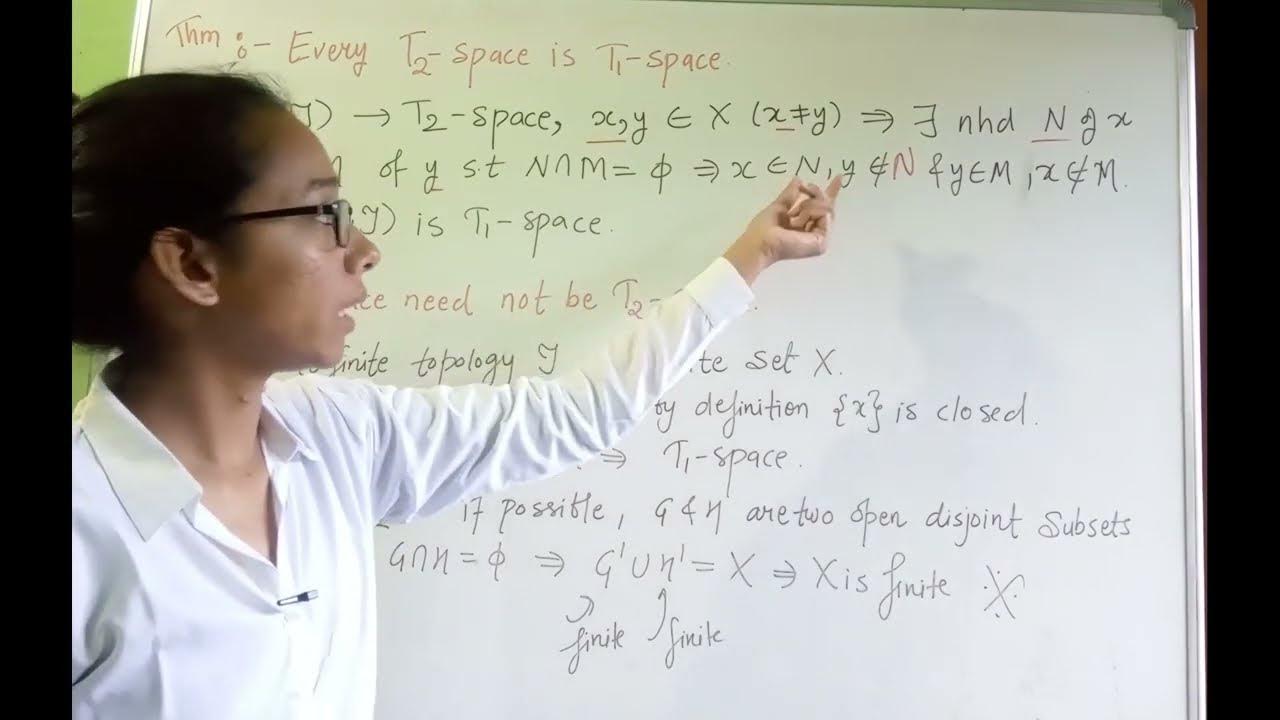 Thm :- Every T₂-space is T₁-space.
J) → T₂-space, x,y ∈ X (x≠y) ⇒ ∃ nhd N of x
of y s.t N∩M = ϕ ⇒ x ∈ N, y ∉ N & y∈M, x∉M.
J) is T₁-space.
need not be T₂-
finite topology J set X.
by definition {x} is closed.
⇒ T₁-space.
if possible, G & H are two open disjoint Subsets
G∩H = ϕ ⇒ G' ∪ H' = X ⇒ X is finite
finite finite